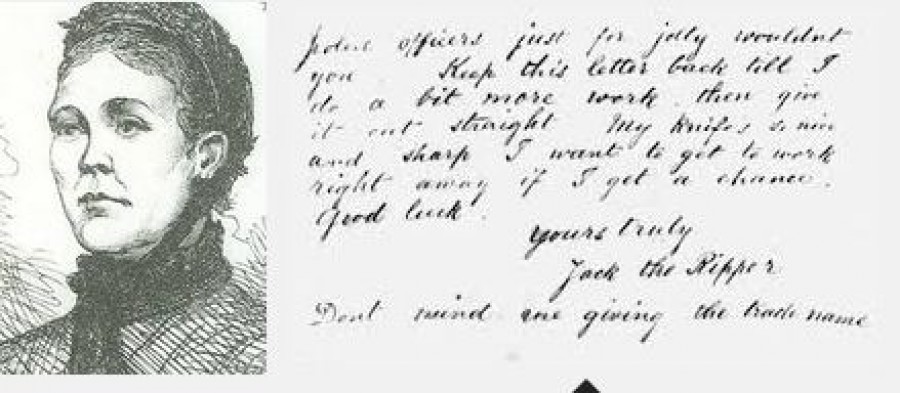 police officers just for jolly wouldnt
you Keep this letter back till I
do a bit more work. then give
it out straight My knife's so nice
and sharp I want to get to work
right away if I get a chance.
Good luck.
yours truly
Jack the Ripper
Dont mind me giving the trade name